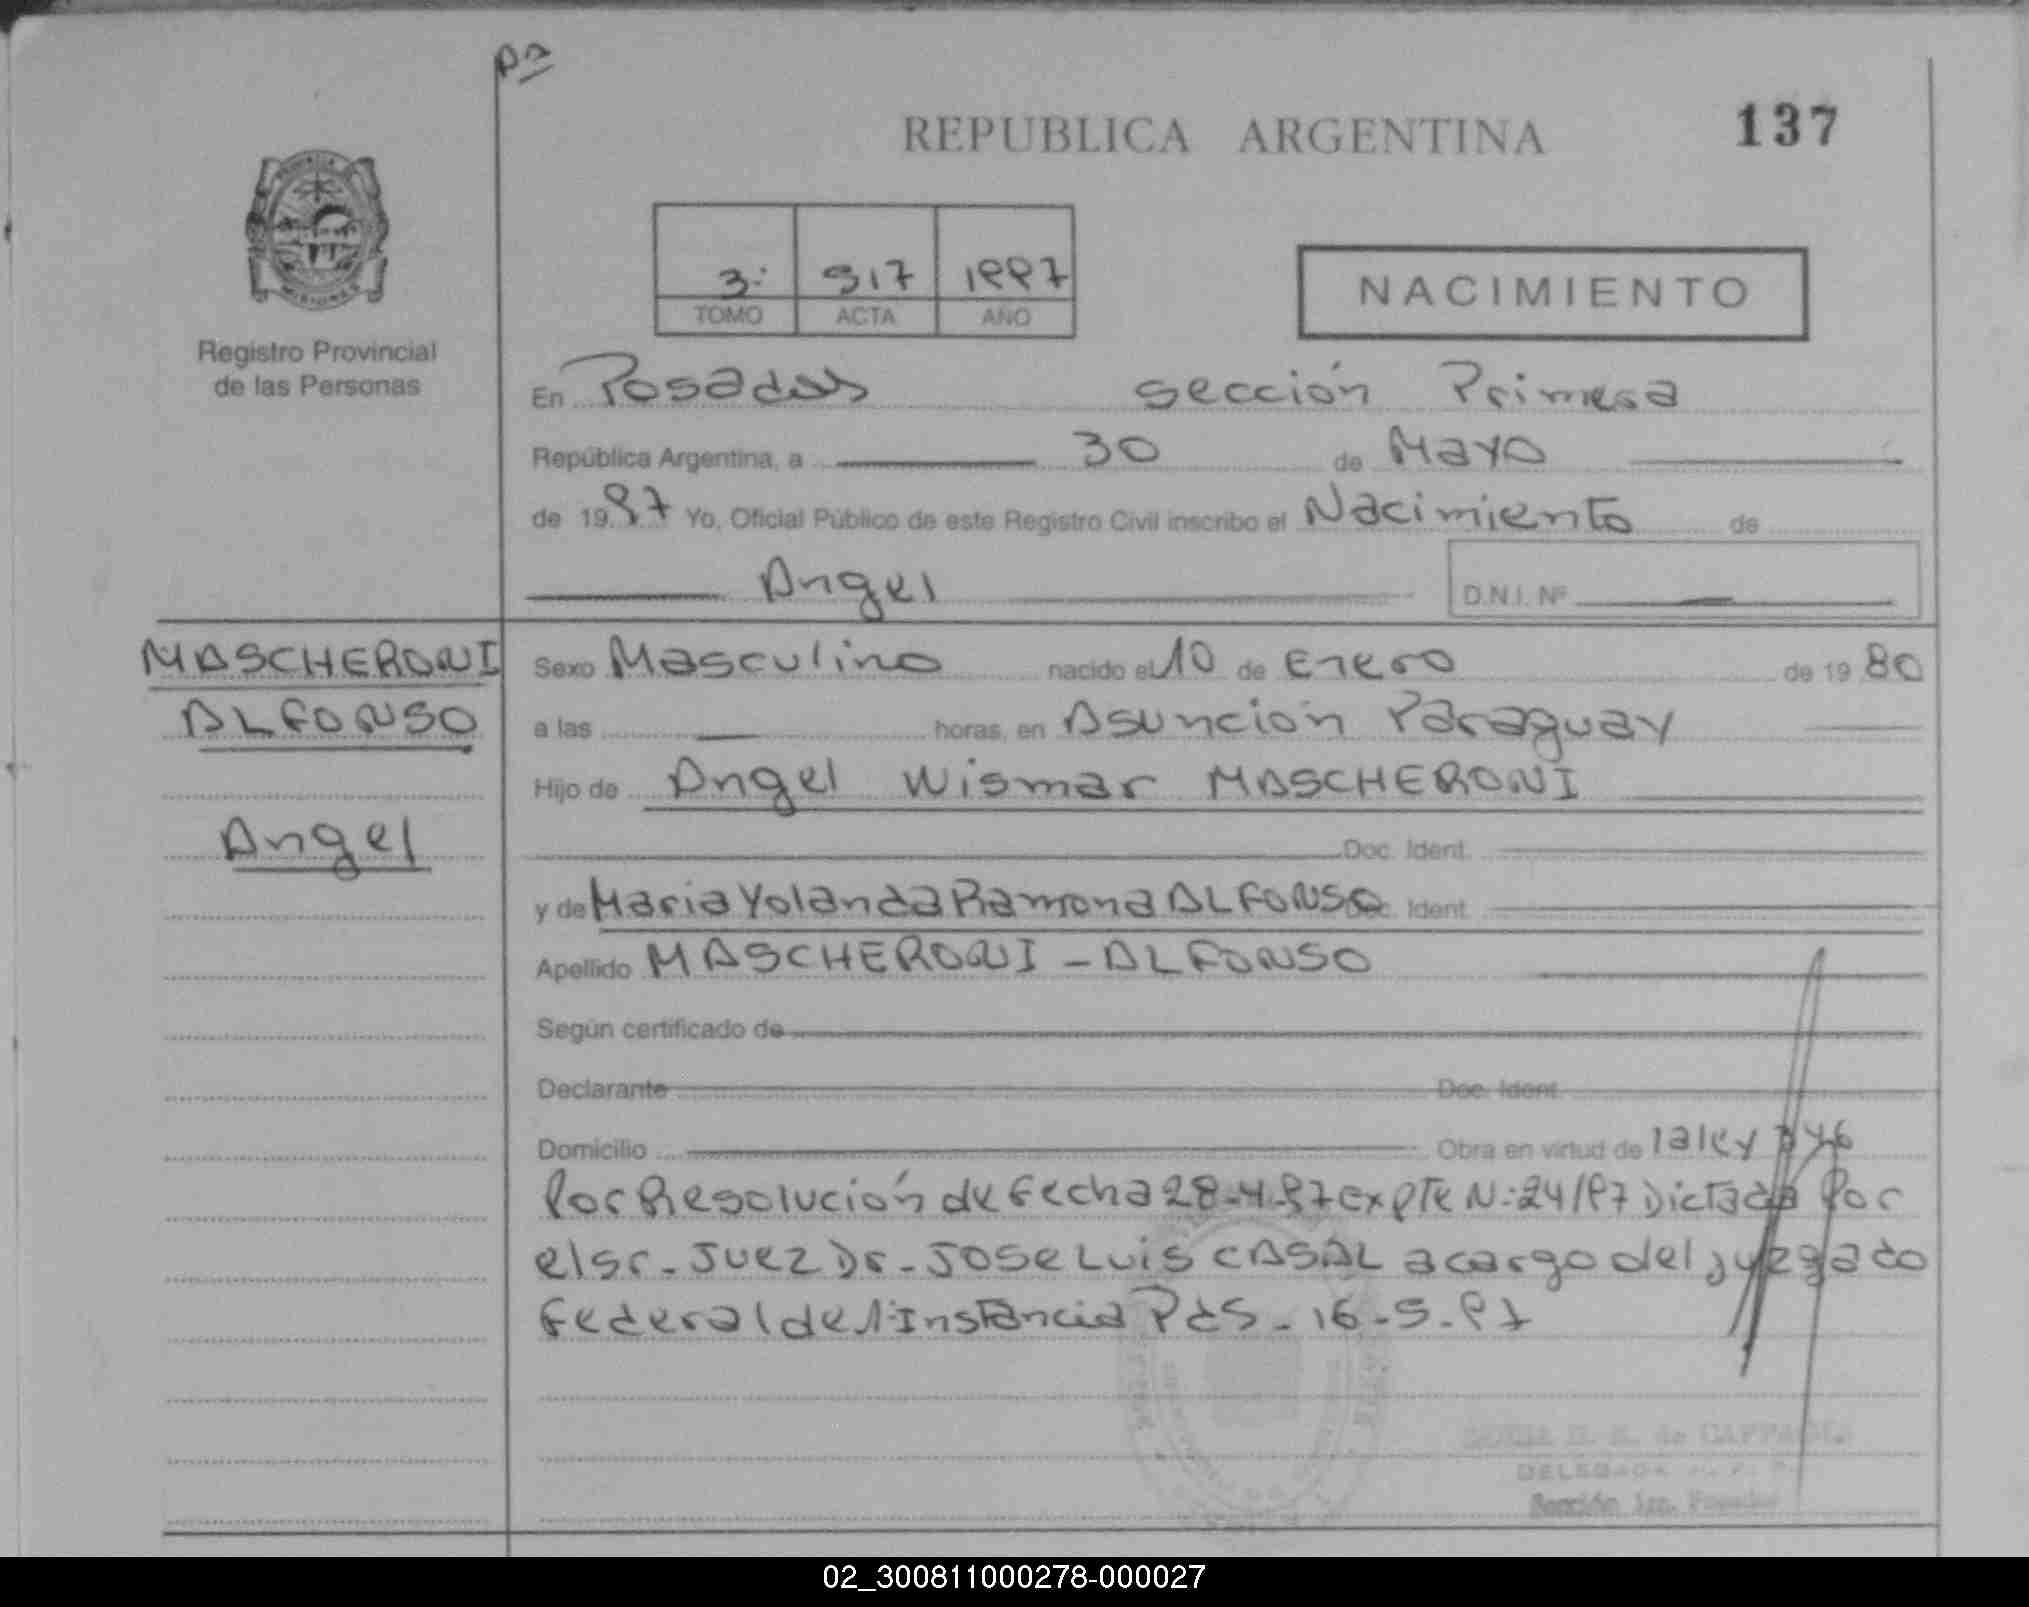 Pª
REPUBLICA ARGENTINA
137
3: 517 1997
TOMO ACTA AÑO
NACIMIENTO
Registro Provincial
de las Personas
En Posadas sección Primera
República Argentina, a 30 de Mayo
de 1997 Yo, Oficial Público de este Registro Civil inscribo el Nacimiento de
Angel
D.N.I. Nº
MASCHERONI
ALFONSO
Angel
Sexo Masculino nacido el 10 de Enero de 1980
a las horas, en Asunción Paraguay
Hijo de Angel Wismar MASCHERONI
Doc. Ident.
y de Maria Yolanda Ramona ALFONSO Doc. Ident.
Apellido MASCHERONI - ALFONSO
Según certificado de
Declarante Doc. Ident.
Domicilio Obra en virtud de la ley
Por Resolución de Fecha 28-4-97 expte N: 24/97 Dictada Por
el sr. Juez Dr. JOSE LUIS CASAL a cargo del juzgado
Federal de 1: Instancia Pds - 16-5-97
de
DELEGADA
Sección 1ra. Posadas
02_300811000278-000027